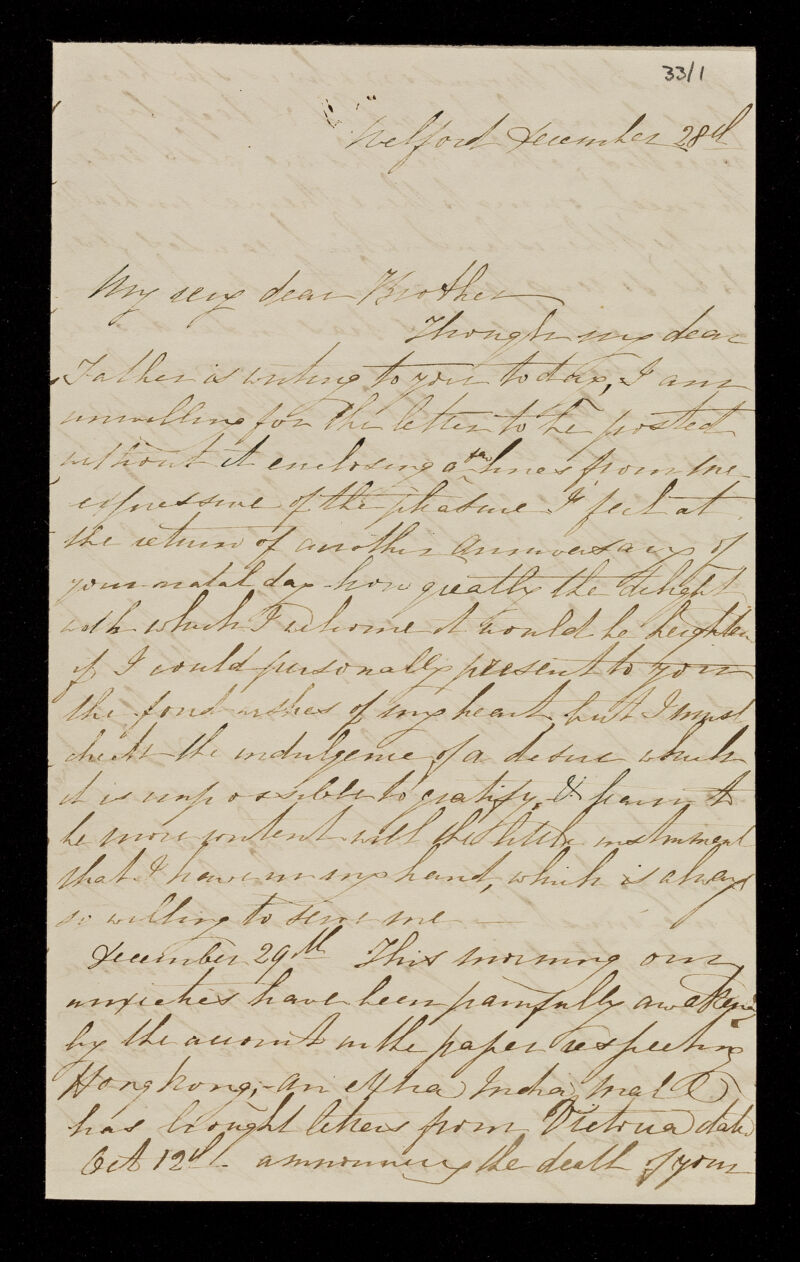 33/1
Welford December 28th
My very dear Brother
Though my dear
Father is writing to you today, I am
unwilling for the letter to be posted
without it enclosing a few lines from me
expressive of the pleasure I feel at
the return of another anniversary of
your natal day - how greatly the delight
with which I welcome it would be heighten
if I could personally present to you
the fond wishes of my heart, but I must
check the indulgence of a desire which
it is impossible to gratify, & learn to
be more content with the little instrument
that I have in my hand, which is always
so willing to serve me —
December 29th This morning our
anxieties have been painfully awakened
by the account in the paper respecting
Hong Kong, - An extra India mail
has brought letters from Victoria dated
Oct 12th - announcing the death of your